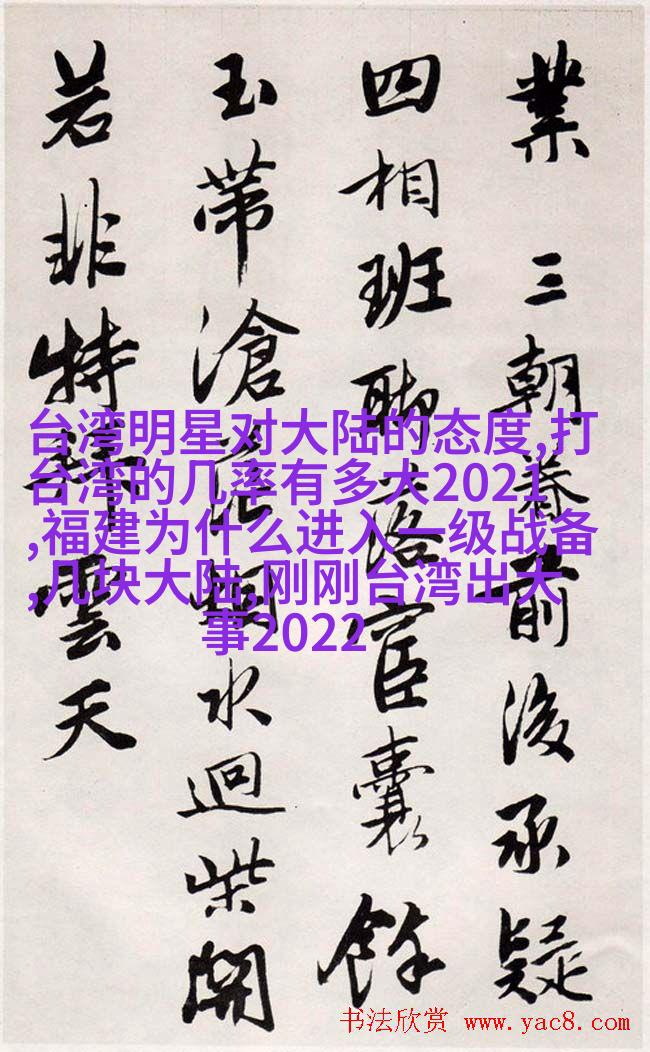 業 三朝眷前後承疑
四相班聯落宦囊餘
玉帶滄茫水迴柴
若非特雲天
台湾明星对大陆的态度,打
台湾的几率有多大2021
,福建为什么进入一级战备
,几块大陆,刚刚台湾出大
事2022
书法欣赏 www.yac8.com